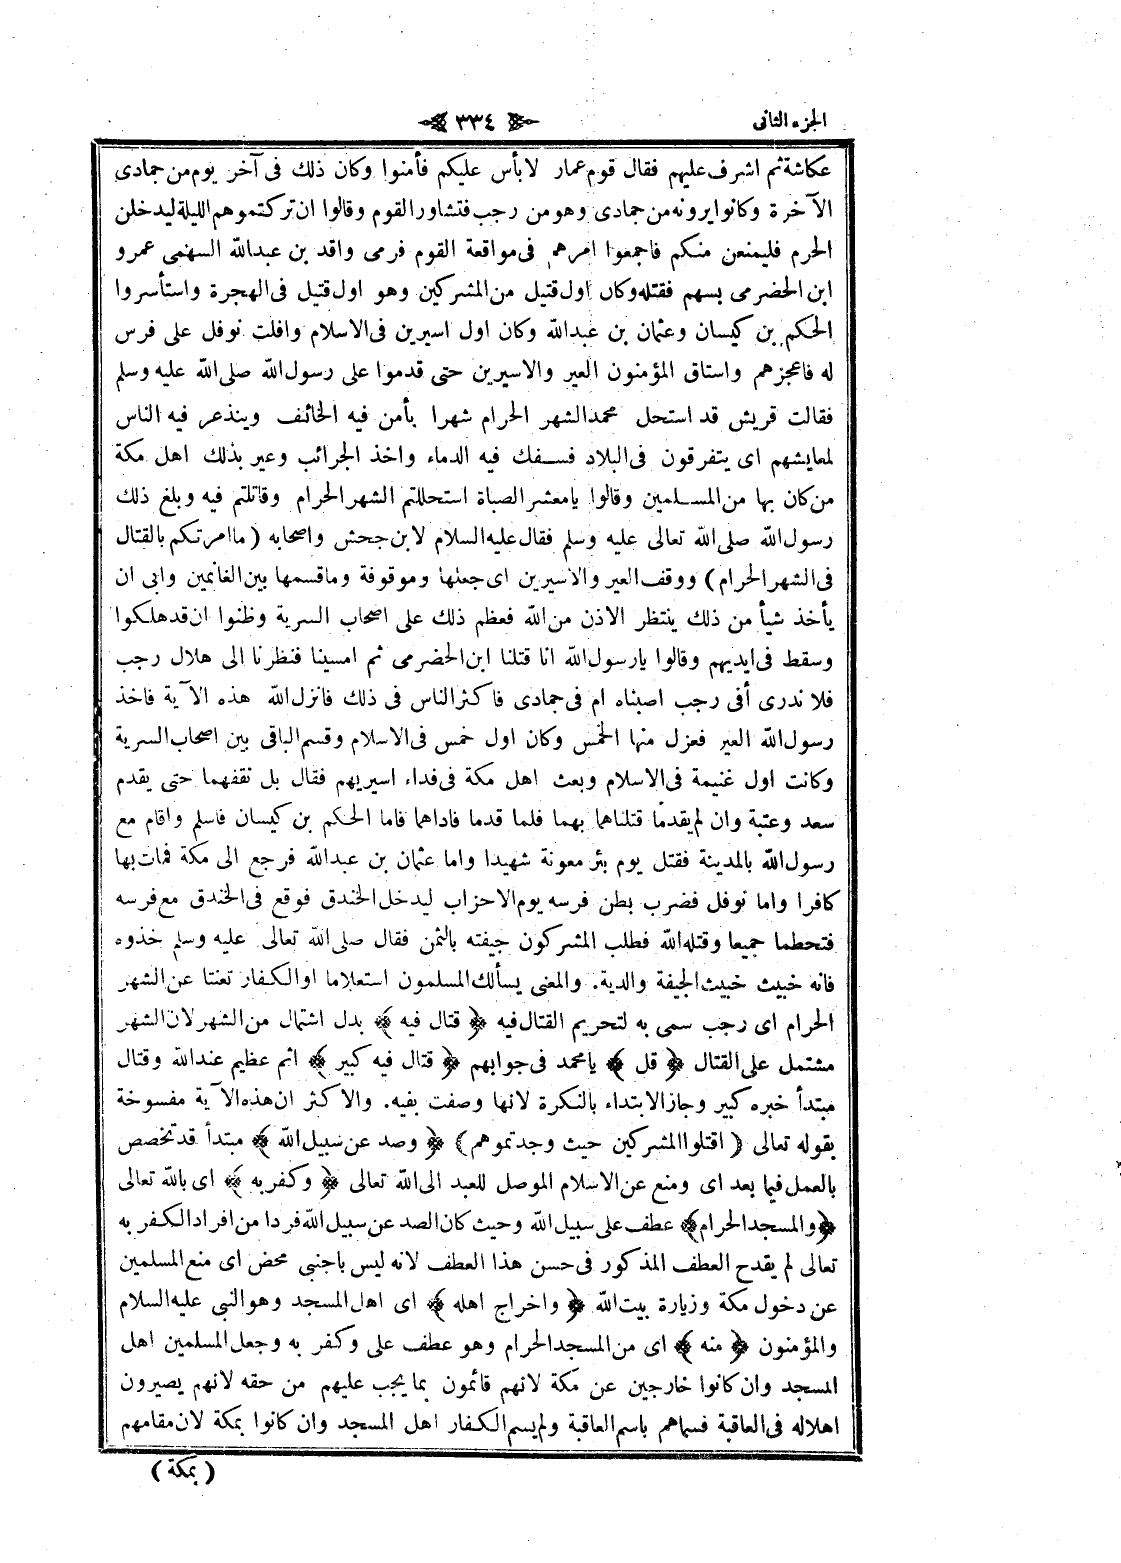 الجزء الثانى
٣٣٤
عكاشة ثم اشرف عليهم فقال قوم عمار لا بأس عليكم فأمنوا وكان ذلك فى آخر يوم من جمادى
الآخرة وكانوا يرونه من جمادى وهو من رجب فتشاور القوم وقالوا ان تركتموهم الليلة ليدخلن
الحرم فليمنعن منكم فاجمعوا امرهم فى مواقعة القوم فرمى واقد بن عبدالله السهمى عمرو
ابن الحضرمى بسهم فقتله وكان اول قتيل من المشركين وهو اول قتيل فى الهجرة واستأسروا
الحكم بن كيسان وعثمان بن عبدالله وكان اول اسيرين فى الاسلام وافلت نوفل على فرس
له فاعجزهم واستاق المؤمنون العير والاسيرين حتى قدموا على رسول الله صلى الله عليه وسلم
فقالت قريش قد استحل محمد الشهر الحرام شهرا يأمن فيه الخائف وينذعر فيه الناس
لمعايشهم اى يتفرقون فى البلاد فسفك فيه الدماء واخذ الجرائب وعير بذلك اهل مكة
من كان بها من المسلمين وقالوا يامعشر الصباة استحللتم الشهر الحرام وقاتلتم فيه وبلغ ذلك
رسول الله صلى الله تعالى عليه وسلم فقال عليه السلام لابن جحش واصحابه ( ما امرتكم بالقتال
فى الشهر الحرام ) ووقف العير والاسيرين اى جعلها وموقوفة وما قسمها بين الغانمين وابى ان
يأخذ شيأ من ذلك ينتظر الاذن من الله فعظم ذلك على اصحاب السرية وظنوا ان قد هلكوا
وسقط فى ايديهم وقالوا يارسول الله انا قتلنا ابن الحضرمى ثم امسينا فنظرنا الى هلال رجب
فلا ندرى أفى رجب اصبناه ام فى جمادى فاكثر الناس فى ذلك فانزل الله هذه الآية فاخذ
رسول الله العير فعزل منها الخمس وكان اول خمس فى الاسلام وقسم الباقى بين اصحاب السرية
وكانت اول غنيمة فى الاسلام وبعث اهل مكة فى فداء اسيريهم فقال بل نقفهما حتى يقدم
سعد وعتبة وان لم يقدما قتلناهما بهما فلما قدما فاداهما فاما الحكم بن كيسان فاسلم واقام مع
رسول الله بالمدينة فقتل يوم بئر معونة شهيدا واما عثمان بن عبدالله فرجع الى مكة فمات بها
كافرا واما نوفل فضرب بطن فرسه يوم الاحزاب ليدخل الخندق فوقع فى الخندق مع فرسه
فتحطما جميعا وقتله الله فطلب المشركون جيفته بالثمن فقال صلى الله تعالى عليه وسلم خذوه
فانه خبيث خبيث الجيفة والدية. والمعنى يسألك المسلمون استعلاما او الكفار تعنتا عن الشهر
الحرام اى رجب سمى به لتحريم القتال فيه ﴿ قتال فيه ﴾ بدل اشتمال من الشهر لان الشهر
مشتمل على القتال ﴿ قل ﴾ يامحمد فى جوابهم ﴿ قتال فيه كبير ﴾ اثم عظيم عندالله وقتال
مبتدأ خبره كبير وجاز الابتداء بالنكرة لانها وصفت بفيه. والاكثر ان هذه الآية مفسوخة
بقوله تعالى ( اقتلوا المشركين حيث وجدتموهم ) ﴿ وصد عن سبيل الله ﴾ مبتدأ قد تخصص
بالعمل فيما بعد اى ومنع عن الاسلام الموصل للعبد الى الله تعالى ﴿ وكفر به ﴾ اى بالله تعالى
﴿ والمسجد الحرام ﴾ عطف على سبيل الله وحيث كان الصد عن سبيل الله فردا من افراد الكفر به
تعالى لم يقدح العطف المذكور فى حسن هذا العطف لانه ليس باجنبى محض اى منع المسلمين
عن دخول مكة وزيارة بيت الله ﴿ واخراج اهله ﴾ اى اهل المسجد وهو النبى عليه السلام
والمؤمنون ﴿ منه ﴾ اى من المسجد الحرام وهو عطف على وكفر به وجعل المسلمين اهل
المسجد وان كانوا خارجين عن مكة لانهم قائمون بما يجب عليهم من حقه لانهم يصيرون
اهلا له فى العاقبة فسماهم باسم العاقبة ولم يسم الكفار اهل المسجد وان كانوا بمكة لان مقامهم
( بمكة )